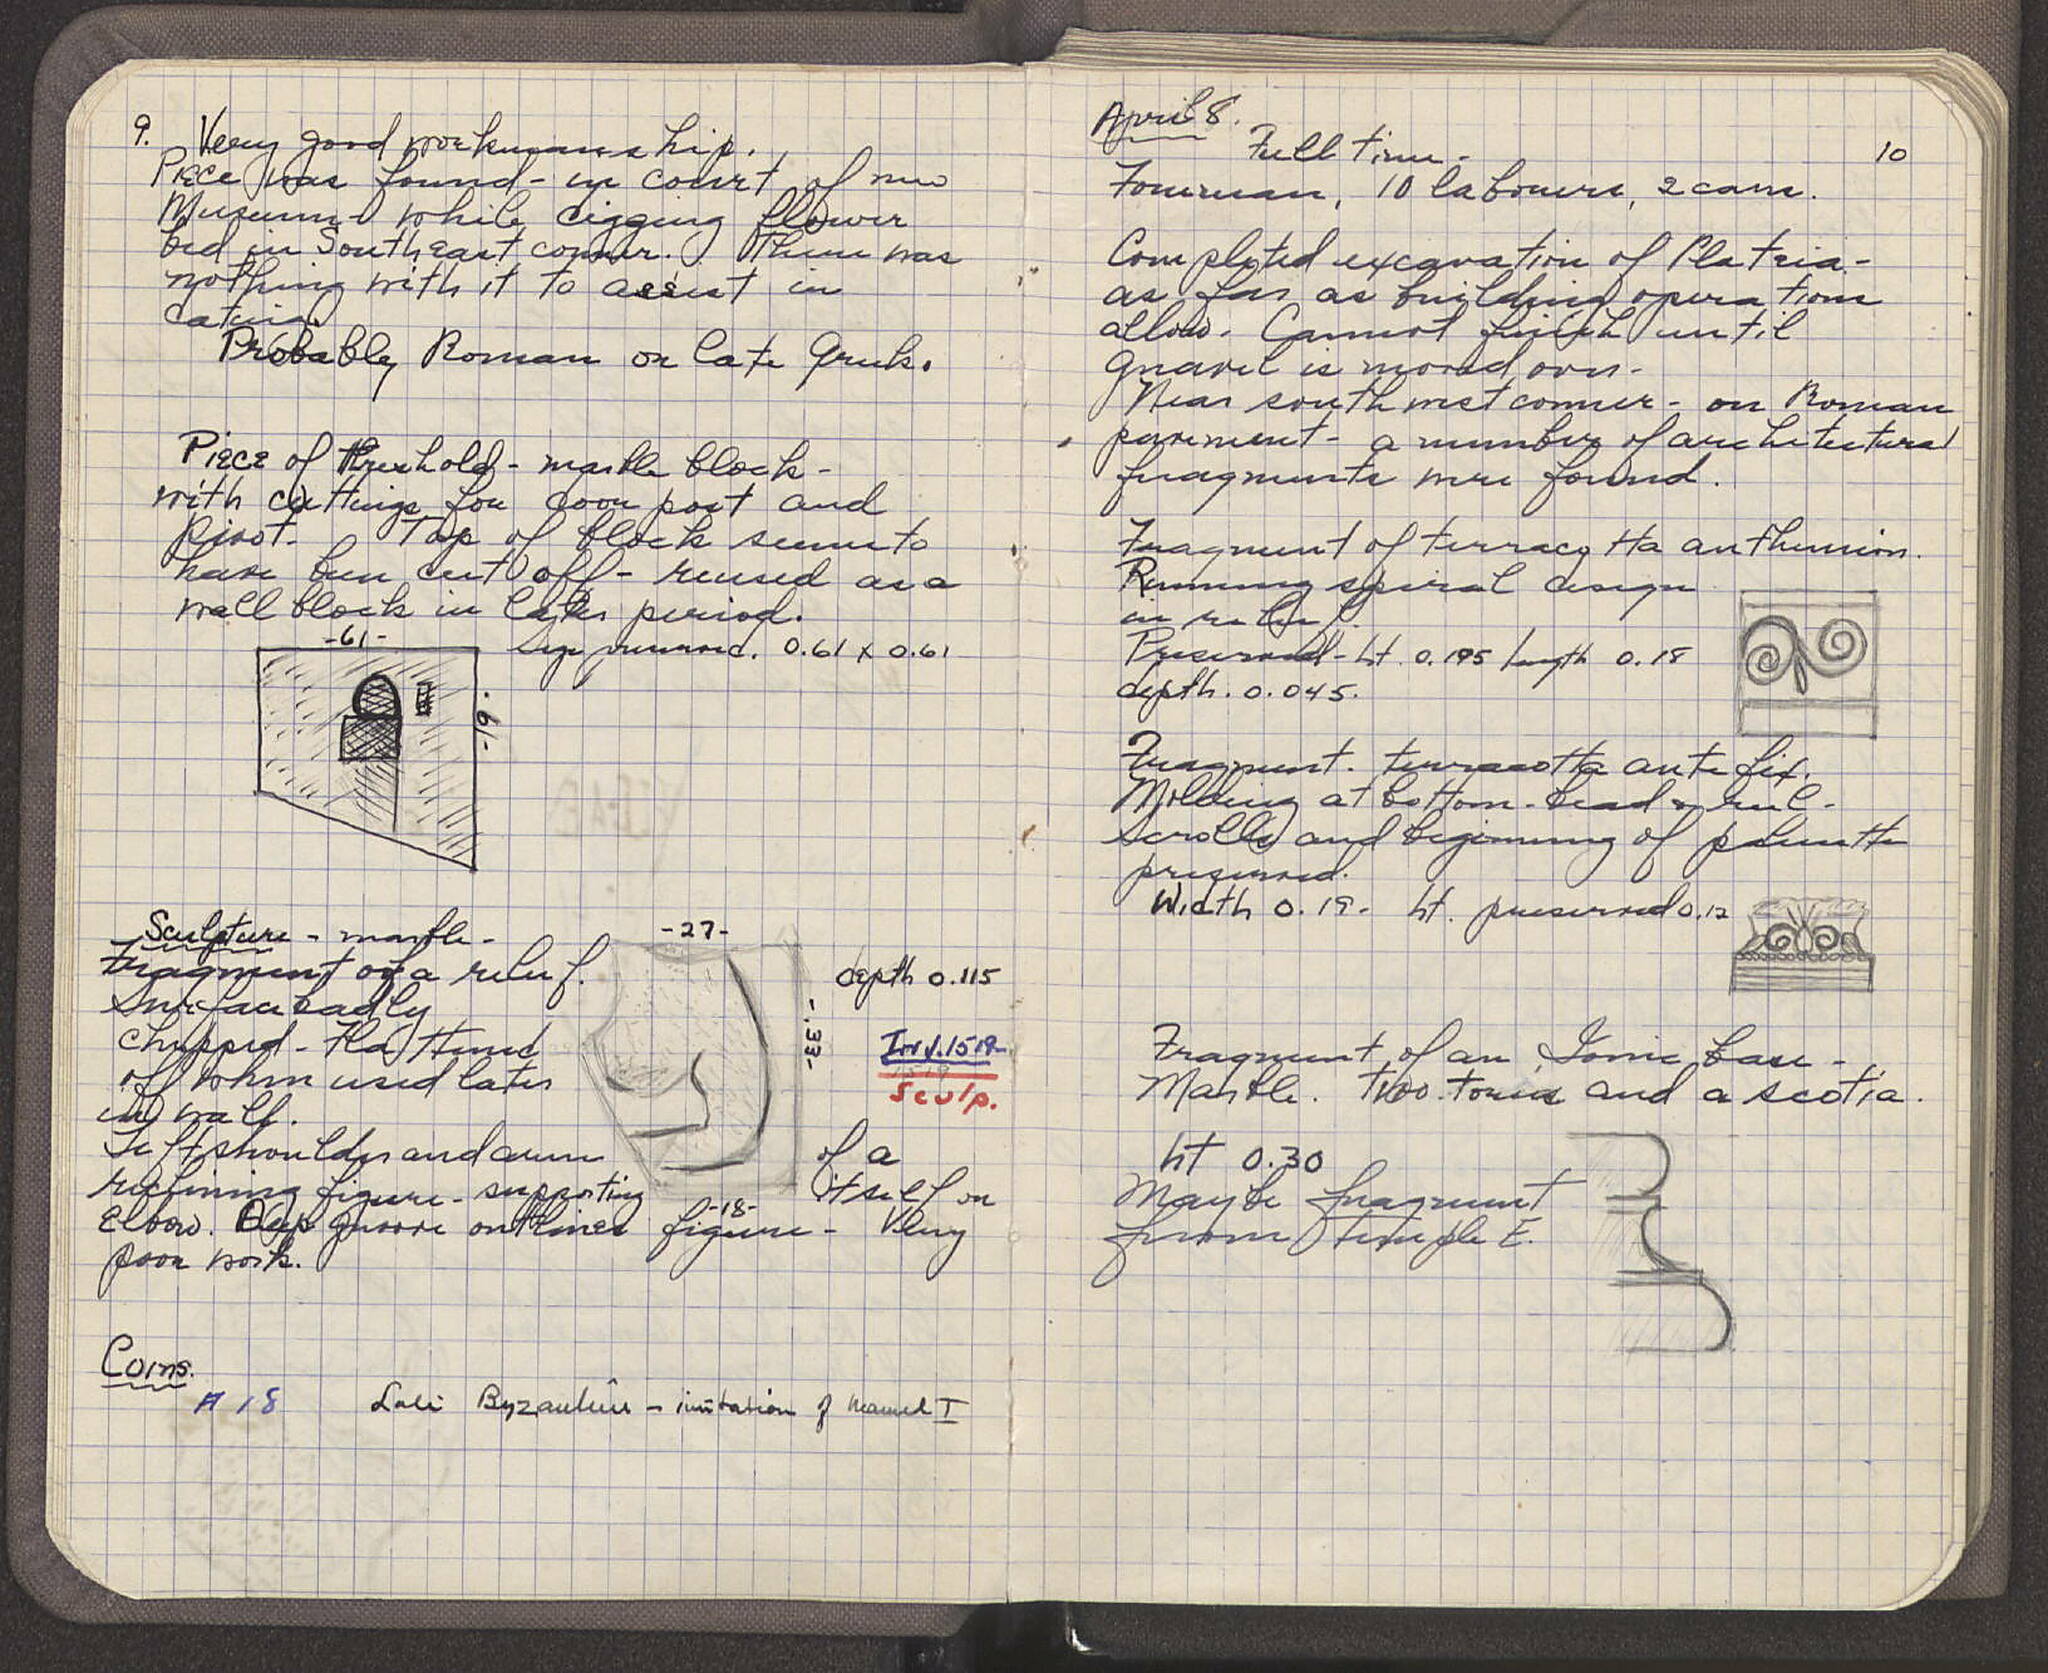 9. Very good workmanship.
Piece was found - in court of new
Museum - while digging flower
bed in Southeast corner. There was
nothing with it to assist in
dating.
Probably Roman or late Greek.
Piece of threshold - marble block -
with cuttings for door post and
pivot. Top of block seems to
have been cut off - reused as a
wall block in later period.
-61-
preserved. 0.61 x 0.61
.61-
Sculpture - marble -
Fragment of a relief.
Surface badly
chipped - flattened
off when used later
in wall.
Left shoulder and arm of a
reclining figure - supporting itself on
elbow. Deep groove outlines figure - Very
poor work.
-27-
depth 0.115
-.33-
-18-
Inv. 1519
1519
Sculp.
Coins.
A 18 Late Byzantine - imitation of Manuel I
April 8.
10
Full time -
Foreman, 10 labourers, 2 cars.
Completed excavation of Plateia -
as far as building operations
allow. Cannot finish until
gravel is moved over -
Near southwest corner - on Roman
pavement - a number of architectural
fragments were found.
Fragment of terracotta anthemion.
Running spiral design
in relief.
Preserved - ht. 0.195 length 0.18
depth. 0.045.
Fragment. terracotta antefix.
Molding at bottom - bead & reel -
scrolls and beginning of palmette
preserved.
Width 0.19 - ht. preserved 0.12
Fragment of an Ionic base -
Marble. Two torus and a scotia.
ht 0.30
Maybe fragment
from temple E.